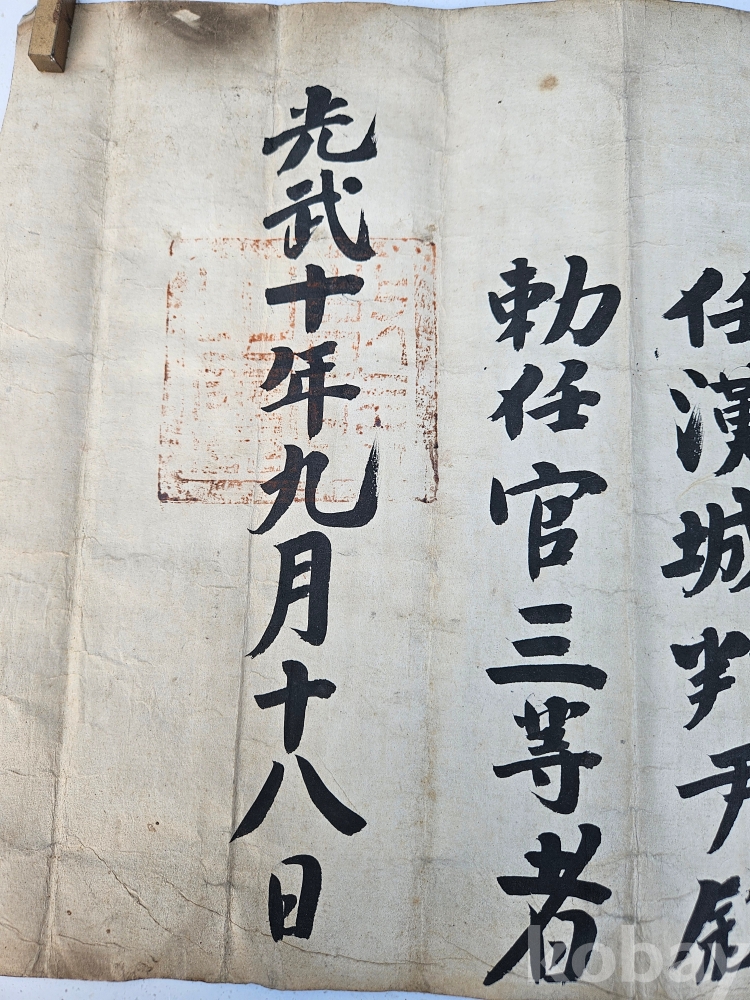 任漢城判尹敍
勅任官三等者
光武十年九月十八日
kobay